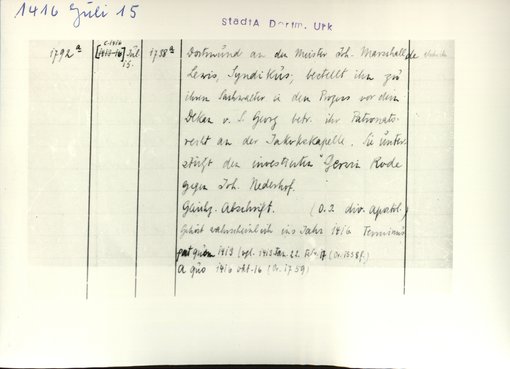 1416 Juli 15
StadtA Dortm. Urk
1792a [c. 1416 1415-16] Juli 15. 1758a Dortmund an den Meister Joh. Marschalk de
Lewis, Syndikus, bestellt ihn zu
ihrem Sachwalter in dem Prozess vor dem
Dekan v. S. Georg betr. ihr Patronats-
recht an der Jakobskapelle. Sie unter-
stützt den investierten Gerwin Rode
gegen Joh. Nederhof.
Gleichz. Abschrift. (O. J. div. apostol.)
Gehört wahrscheinlich ins Jahr 1416 Terminus
post quem 1413 (vgl. 1413 Jan. 22. Febr. 17 (Or. 1558f.)
a quo 1416 Okt. 16 (Or. 1759)